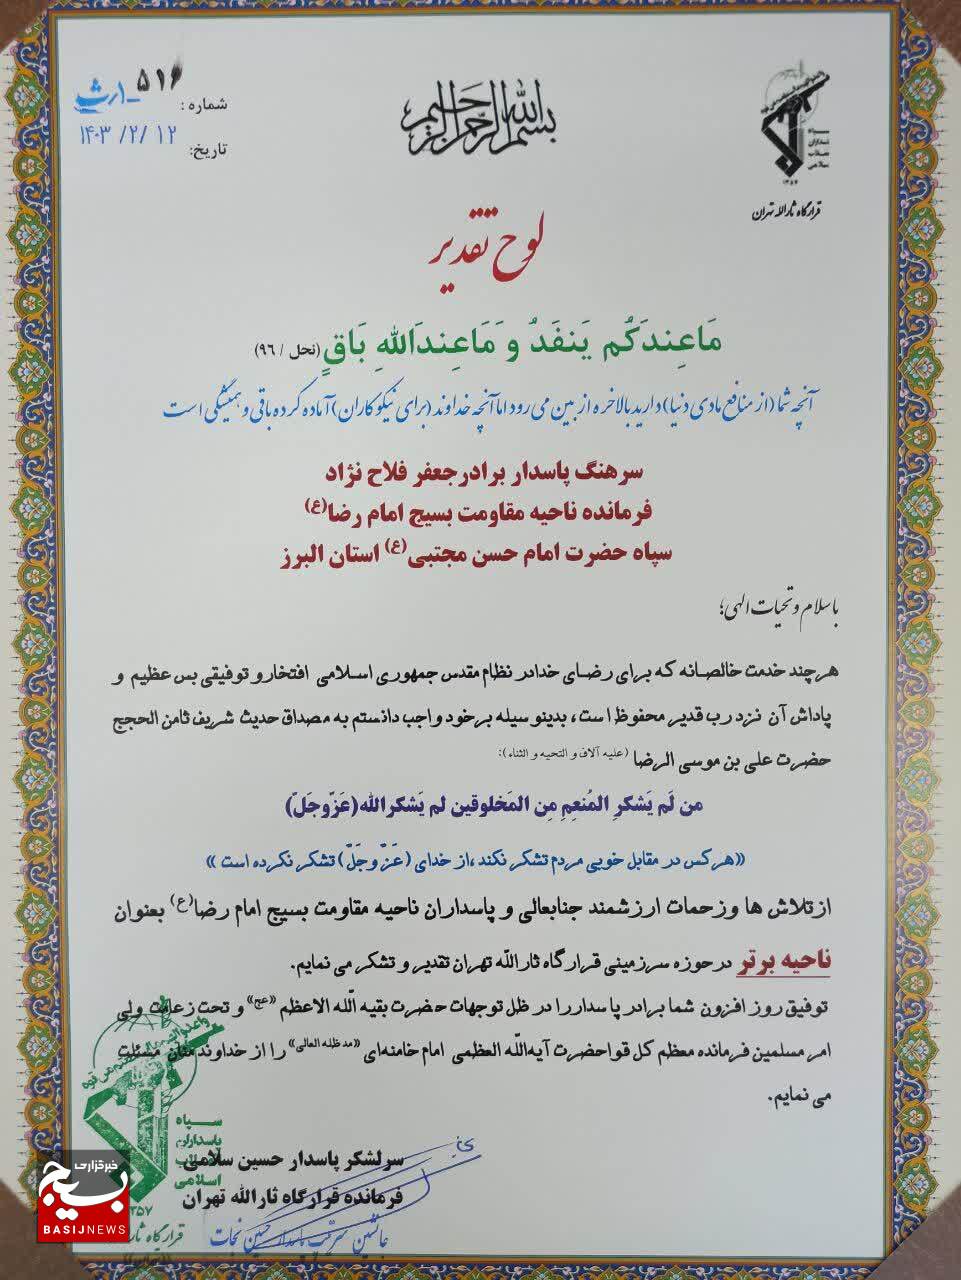 شماره : ۵۱۶
تاریخ: ۱۴۰۳/۲/۱۲
بسم الله الرحمن الرحیم
سپاه
پاسداران
انقلاب
اسلامی
۱۳۵۷
قرارگاه ثارالله تهران
لوح تقدیر
مَاعِندَكُم يَنفَدُ وَ مَاعِندَاللهِ بَاقٍ (نحل / ۹۶)
آنچه شما (از منافع مادی دنیا) دارید بالاخره از بین می رود اما آنچه خداوند (برای نیکوکاران) آماده کرده باقی و همیشگی است
سرهنگ پاسدار برادر جعفر فلاح نژاد
فرمانده ناحیه مقاومت بسیج امام رضا(ع)
سپاه حضرت امام حسن مجتبی(ع) استان البرز
با سلام و تحیات الهی؛
هرچند خدمت خالصانه که برای رضای خدا در نظام مقدس جمهوری اسلامی افتخار و توفیقی بس عظیم و
پاداش آن نزد رب قدیر محفوظ است، بدینوسیله برخود واجب دانستم به مصداق حدیث شریف ثامن الحجج
حضرت علی بن موسی الرضا (علیه آلاف و التحیه و الثناء):
من لَم يَشكرِ المُنعِمِ مِن المَخلوقين لم يَشكرالله(عَزّوجَلّ)
«هرکس در مقابل خوبی مردم تشکر نکند ،از خدای (عَزّ وجَلّ) تشکر نکرده است »
ازتلاش ها وزحمات ارزشمند جنابعالی و پاسداران ناحیه مقاومت بسیج امام رضا(ع) بعنوان
ناحیه برتر در حوزه سرزمینی قرارگاه ثاراللّه تهران تقدیر و تشکر می نمایم.
توفیق روز افزون شما برادر پاسدار را در ظل توجهات حضرت بقیه اللّه الاعظم «عج» و تحت زعامت ولی
امر مسلمین فرمانده معظم کل قوا حضرت آیه اللّه العظمی امام خامنه‌ای «مد ظله العالی» را از خداوند منان مسئلت
می نمایم.
سرلشکر پاسدار حسین سلامی
فرمانده قرارگاه ثارالله تهران
جانشین سرتیپ پاسدار حسین نجات
سپاه
پاسداران
انقلاب
اسلامی
۱۳۵۷
خبرگزاری
بسیج
BASIJNEWS